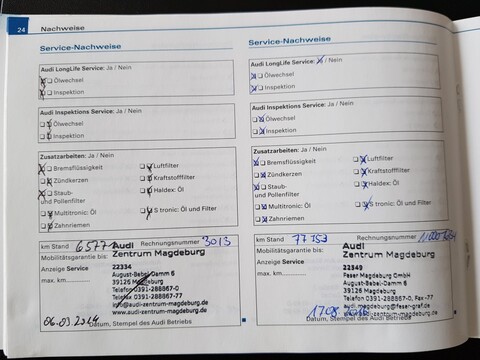 24 Nachweise
Service-Nachweise
Audi LongLife Service: Ja / Nein
Ölwechsel
Inspektion
Audi Inspektions Service: Ja / Nein
Ölwechsel
Inspektion
Zusatzarbeiten: Ja / Nein
Bremsflüssigkeit
Luftfilter
Zündkerzen
Kraftstofffilter
Staub-
und Pollenfilter
Haldex: Öl
Multitronic: Öl
S tronic: Öl und Filter
Zahnriemen
km Stand 6577 Rechnungsnummer 3013
Mobilitätsgarantie bis:
Anzeige Service
max. km
Audi
Zentrum Magdeburg
22334
August-Bebel-Damm 6
39126 Magdeburg
Telefon 0391-288867-0
Telefax 0391-288867-77
info@audi-zentrum-magdeburg.de
www.audi-zentrum-magdeburg.de
06.03.2014
Datum, Stempel des Audi Betriebs
Service-Nachweise
Audi LongLife Service: Ja / Nein
Ölwechsel
Inspektion
Audi Inspektions Service: Ja / Nein
Ölwechsel
Inspektion
Zusatzarbeiten: Ja / Nein
Bremsflüssigkeit
Luftfilter
Zündkerzen
Kraftstofffilter
Staub-
und Pollenfilter
Haldex: Öl
Multitronic: Öl
S tronic: Öl und Filter
Zahnriemen
km Stand 77153 Rechnungsnummer
Mobilitätsgarantie bis:
Anzeige Service
max. km
Audi
Zentrum Magdeburg
22349
Feser Magdeburg GmbH
August-Bebel-Damm 6
39126 Magdeburg
Telefon 0391-288867-0, Fax -77
audi.magdeburg@feser-graf.de
audi-zentrum-magdeburg.de
Datum, Stempel des Audi Betriebs